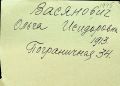 Васянович
Ольга Исидоровна
1913
Пограничная 34.